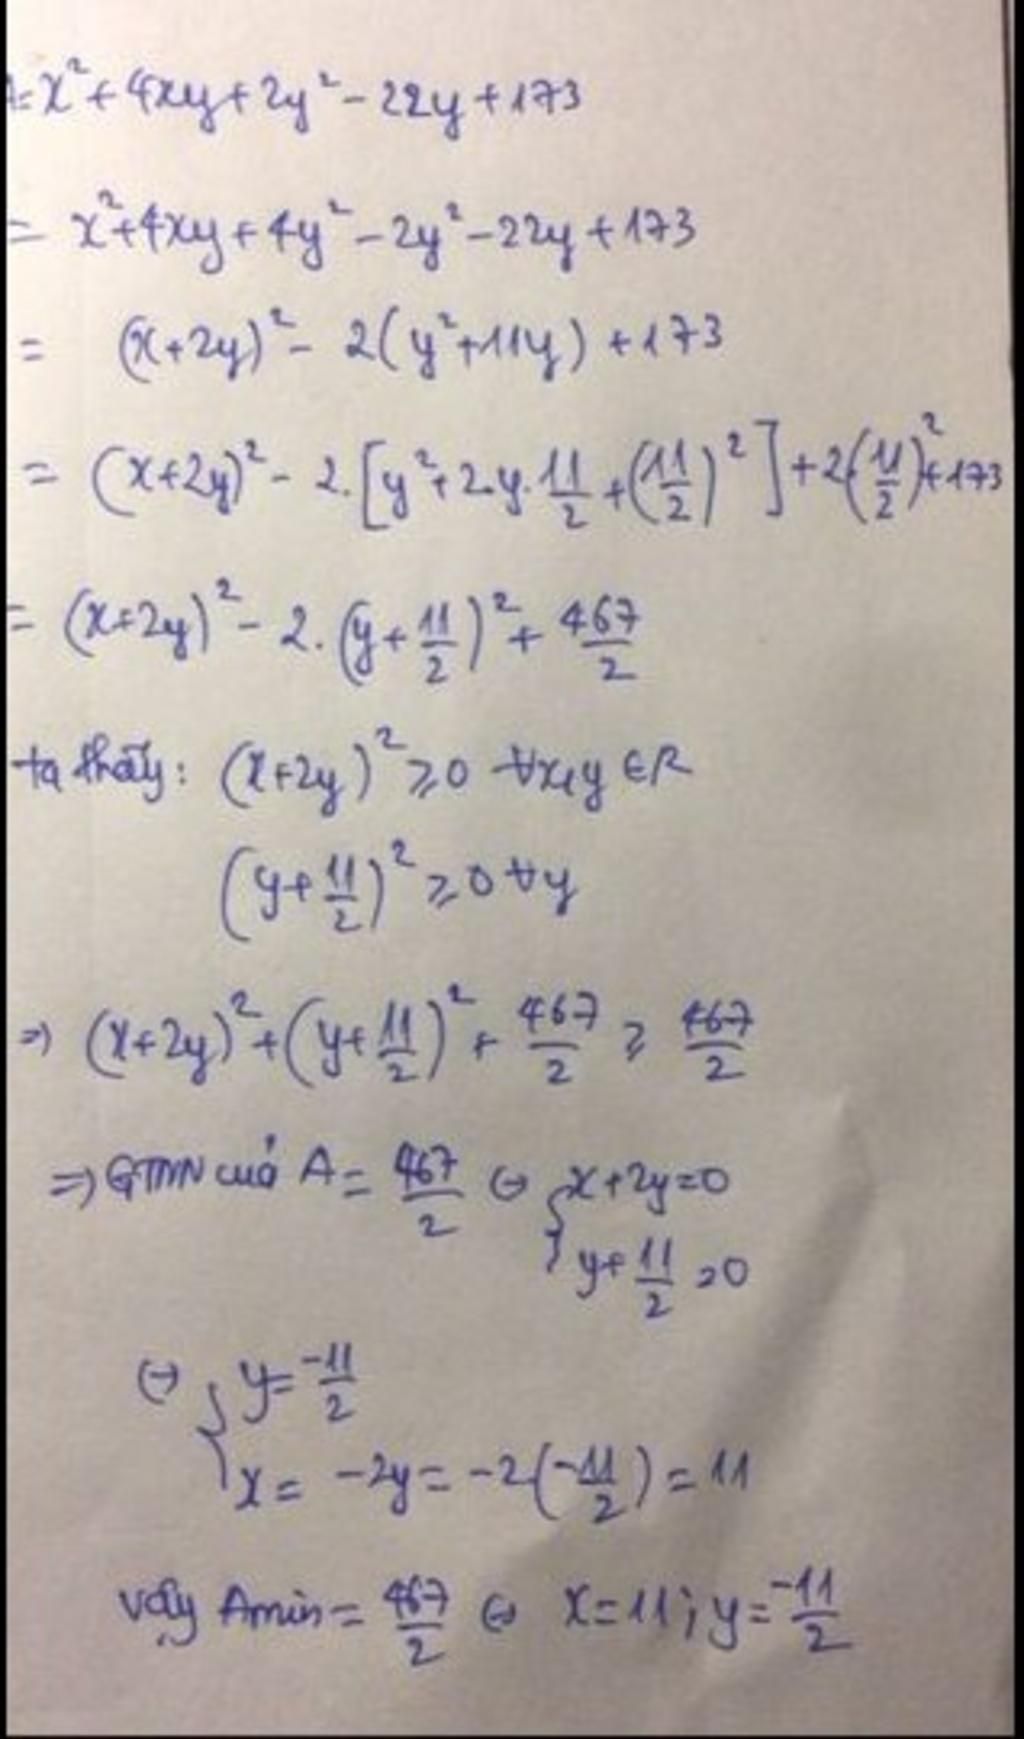 A=x²+4xy+2y²-22y+173
= x²+4xy+4y²-2y²-22y+173
= (x+2y)²-2(y²+11y)+173
= (x+2y)²-2.[y²+2.y.11/2+(11/2)²]+2(11/2)²+173
= (x+2y)²-2.(y+11/2)²+467/2
ta thấy: (x+2y)²≥0 ∀x,y ∈R
(y+11/2)²≥0 ∀y
⇒ (x+2y)²+(y+11/2)²+467/2 ≥ 467/2
⇒ GTNN của A=467/2 ⇔ { x+2y=0
y+11/2=0
⇔ { y=-11/2
x= -2y=-2(-11/2)=11
vậy Amin=467/2 ⇔ x=11; y=-11/2